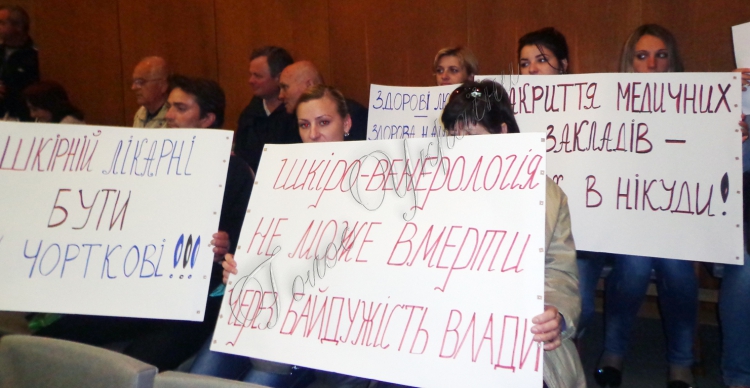 ШКІРНІЙ ЛІКАРНІ
БУТИ
ЧОРТКОВІ!!!
ШКІРО-ВЕНЕРОЛОГІЯ
НЕ МОЖЕ ВМЕРТИ
ЧЕРЕЗ БАЙДУЖІСТЬ ВЛАДИ
ЗДОРОВІ
ЗДОРОВА
АКРИТТЯ МЕДИЧНИХ
ЗАКЛАДІВ –
В НІКУДИ!